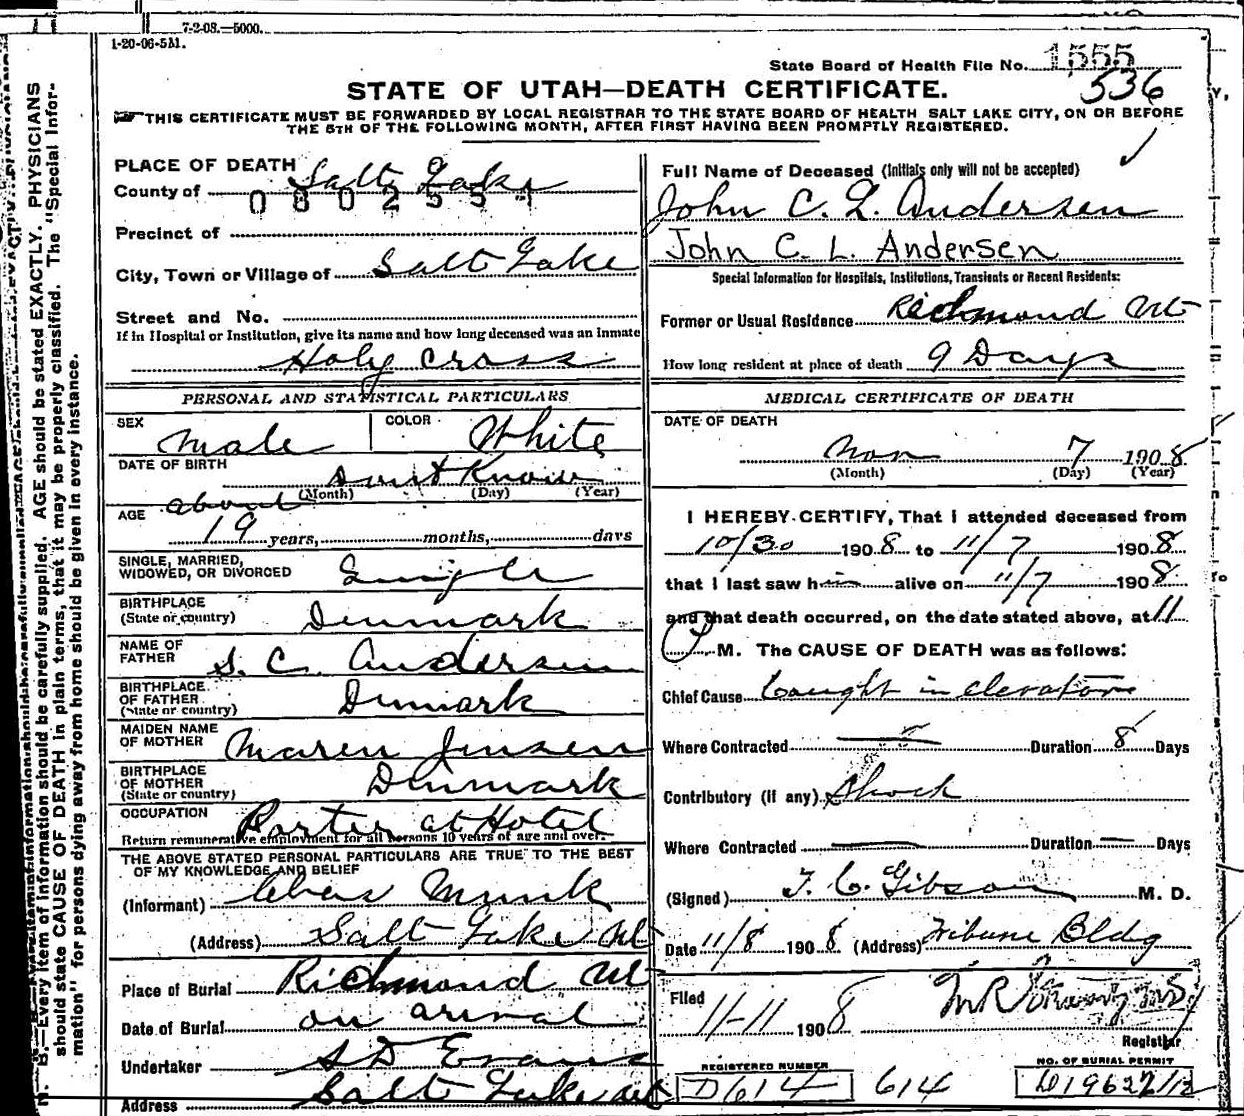 7-2-08.—5000.
1-20-06-5M.
State Board of Health File No. 1555
536
STATE OF UTAH—DEATH CERTIFICATE.
THIS CERTIFICATE MUST BE FORWARDED BY LOCAL REGISTRAR TO THE STATE BOARD OF HEALTH SALT LAKE CITY, ON OR BEFORE
THE 5TH OF THE FOLLOWING MONTH, AFTER FIRST HAVING BEEN PROMPTLY REGISTERED.
N. B.—Every item of information should be carefully supplied. AGE should be stated EXACTLY. PHYSICIANS
should state CAUSE OF DEATH in plain terms, that it may be properly classified. The "Special Infor-
mation" for persons dying away from home should be given in every instance.
PLACE OF DEATH
County of Salt Lake
0802551
Precinct of
City, Town or Village of Salt Lake
Street and No.
If in Hospital or Institution, give its name and how long deceased was an inmate
Holy Cross
PERSONAL AND STATISTICAL PARTICULARS
SEX Male COLOR White
DATE OF BIRTH Dont Know
(Month) (Day) (Year)
AGE about
19 years, months, days
SINGLE, MARRIED,
WIDOWED, OR DIVORCED Single
BIRTHPLACE
(State or country) Denmark
NAME OF
FATHER S. C. Andersen
BIRTHPLACE
OF FATHER
(State or country) Denmark
MAIDEN NAME
OF MOTHER Maren Jensen
BIRTHPLACE
OF MOTHER
(State or country) Denmark
OCCUPATION Porter at Hotel
Return remunerative employment for all persons 10 years of age and over.
THE ABOVE STATED PERSONAL PARTICULARS ARE TRUE TO THE BEST
OF MY KNOWLEDGE AND BELIEF
(Informant) Chas Munk
(Address) Salt Lake Ut
Place of Burial Richmond Ut
Date of Burial on arival
Undertaker S D Evans
Address Salt Lake Ut
Full Name of Deceased (Initials only will not be accepted)
John C. L. Andersen
John C. L. Andersen
Special Information for Hospitals, Institutions, Transients or Recent Residents:
Former or Usual Residence Richmond Ut
How long resident at place of death 9 Days
MEDICAL CERTIFICATE OF DEATH
DATE OF DEATH
Nov 7 1908
(Month) (Day) (Year)
I HEREBY CERTIFY, That I attended deceased from
10/30 1908 to 11/7 1908
that I last saw him alive on 11/7 1908
and that death occurred, on the date stated above, at 11
P. M. The CAUSE OF DEATH was as follows:
Chief Cause Caught in elevator
Where Contracted Duration 8 Days
Contributory (if any) Shock
Where Contracted — Duration — Days
(Signed) T. C. Gibson M. D.
Date 11/8 1908 (Address) Tribune Bldg
Filed 11-11 1908
Registrar
REGISTERED NUMBER
D614 614
NO. OF BURIAL PERMIT